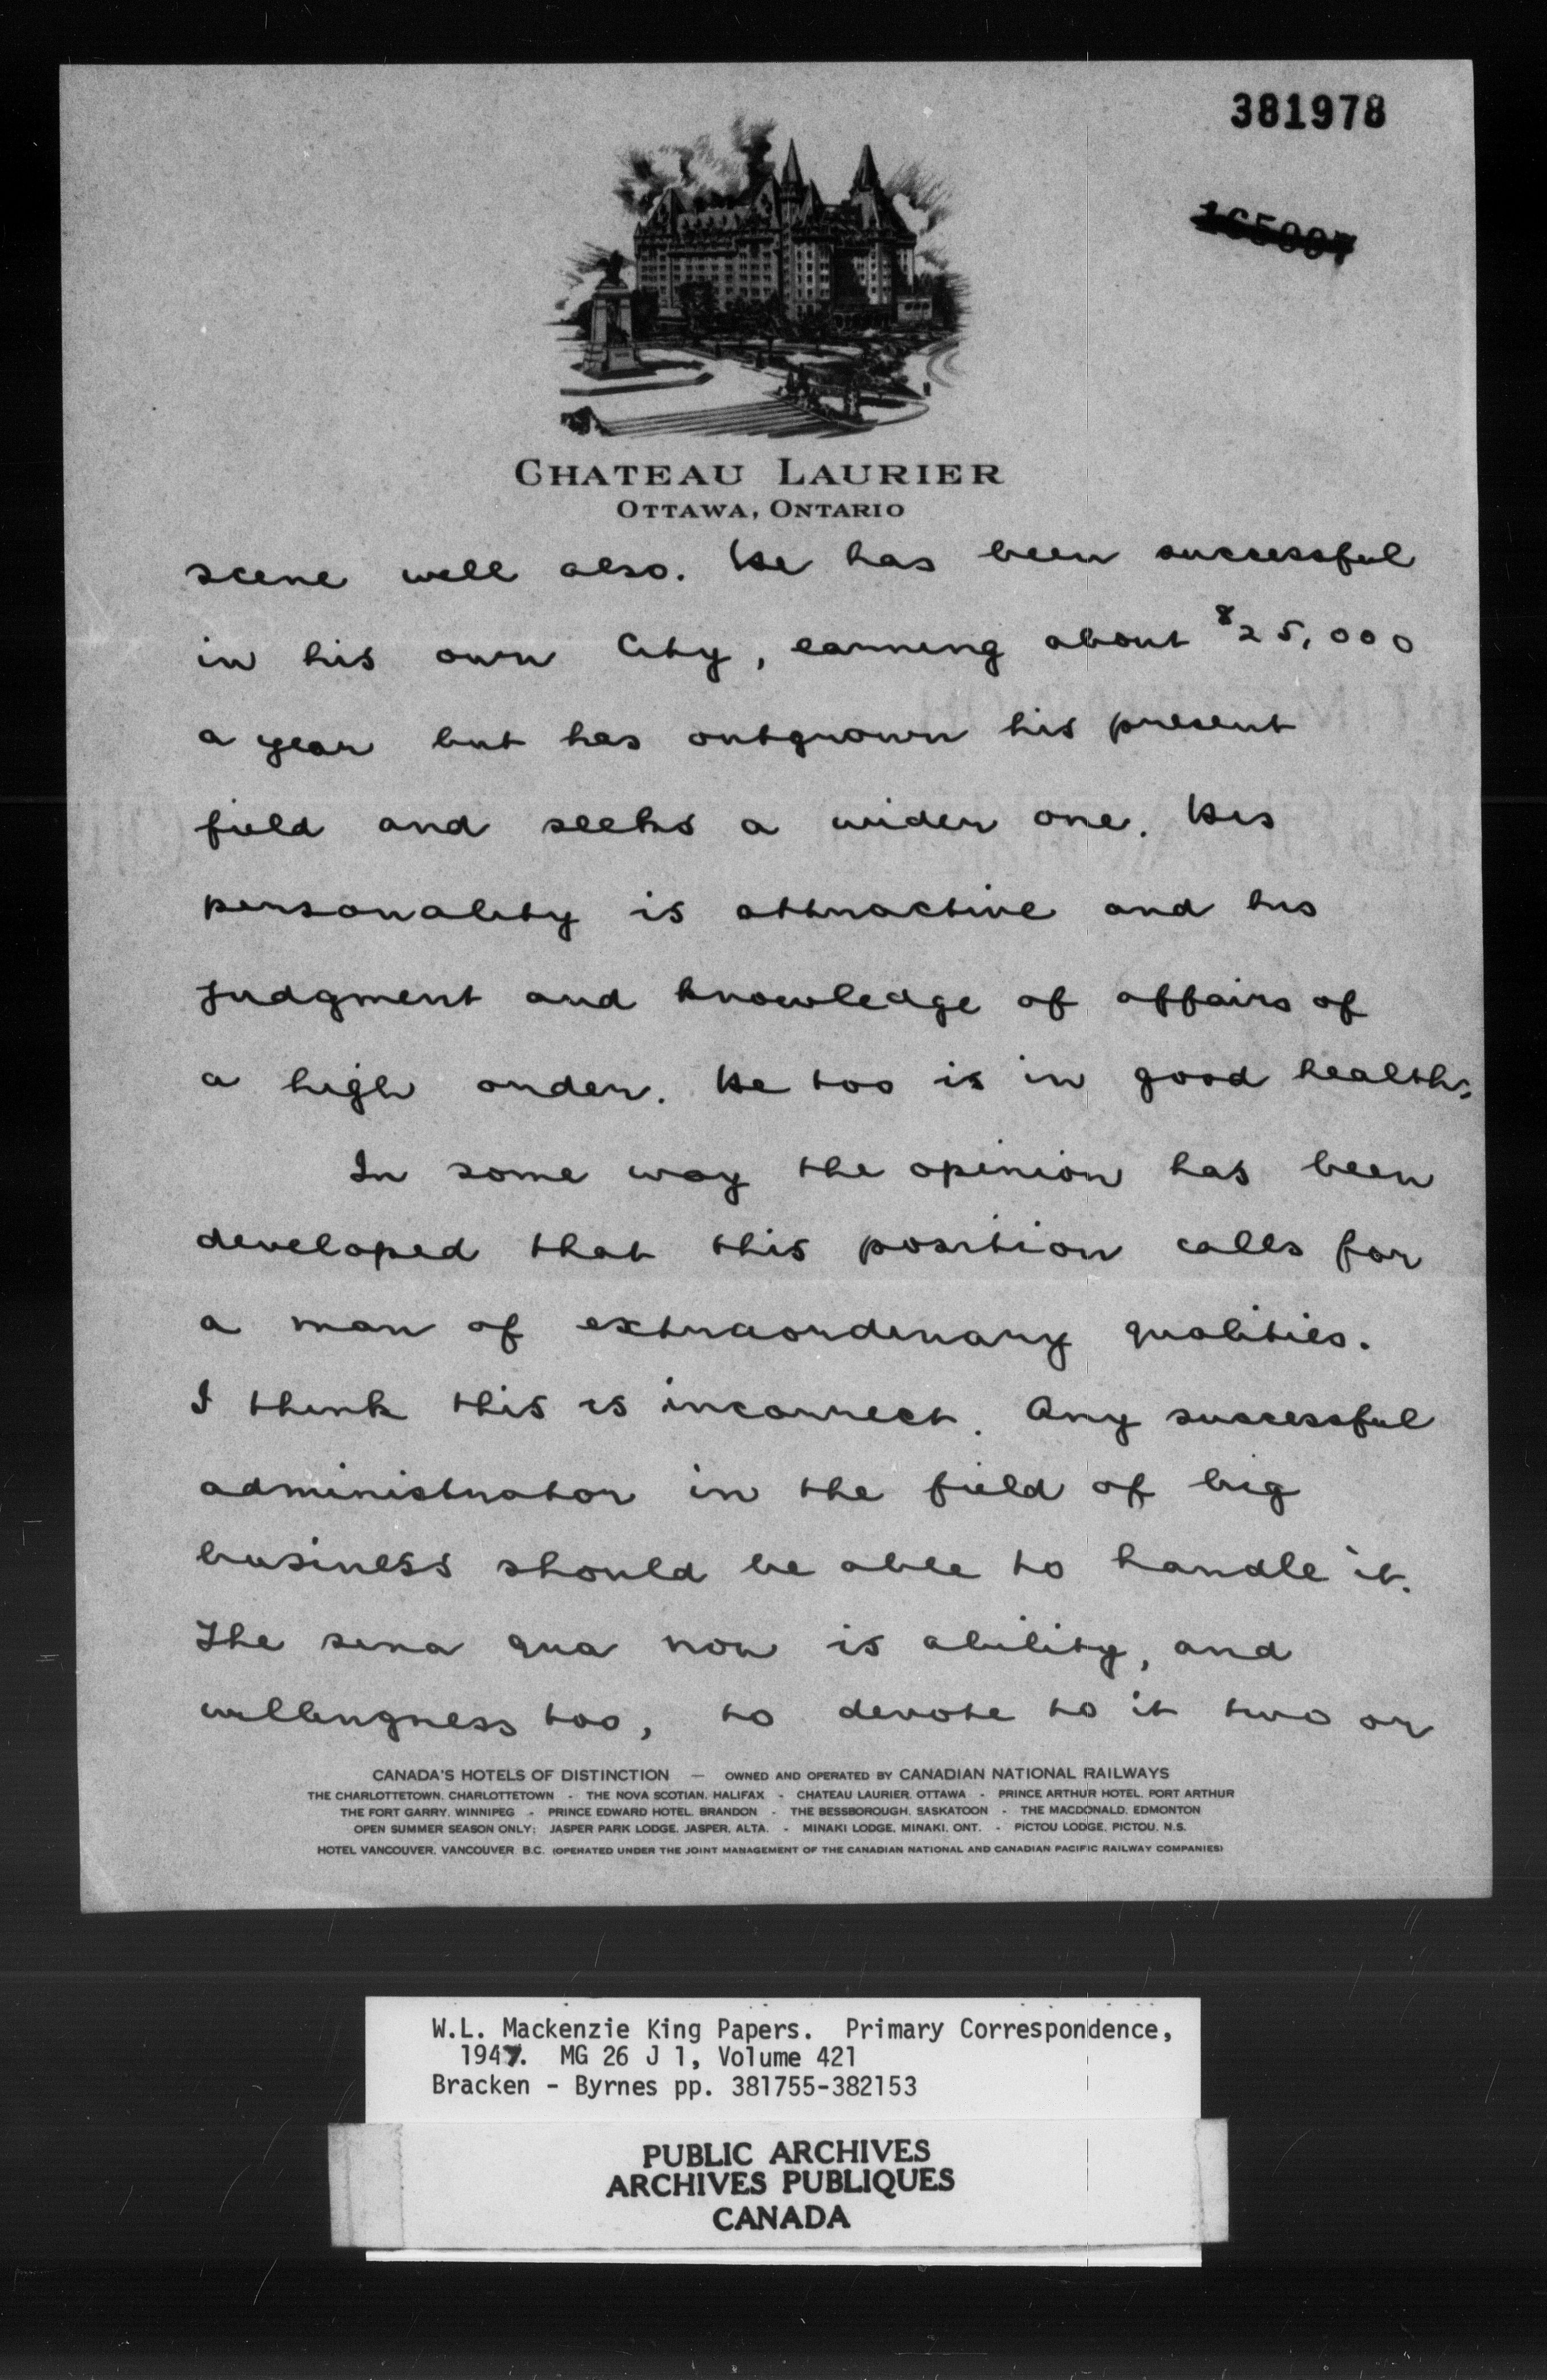 381978
165007
CHATEAU LAURIER
OTTAWA, ONTARIO
scene well also. He has been successful
in his own City, earning about $25,000
a year but has outgrown his present
field and seeks a wider one. His
personality is attractive and his
judgment and knowledge of affairs of
a high order. He too is in good health.
In some way the opinion has been
developed that this position calls for
a man of extraordinary qualities.
I think this is incorrect. Any successful
administrator in the field of big
business should be able to handle it.
The sina qua non is ability, and
willingness too, to devote to it two or
CANADA'S HOTELS OF DISTINCTION — OWNED AND OPERATED BY CANADIAN NATIONAL RAILWAYS
THE CHARLOTTETOWN, CHARLOTTETOWN - THE NOVA SCOTIAN, HALIFAX - CHATEAU LAURIER, OTTAWA - PRINCE ARTHUR HOTEL, PORT ARTHUR
THE FORT GARRY, WINNIPEG - PRINCE EDWARD HOTEL, BRANDON - THE BESSBOROUGH, SASKATOON - THE MACDONALD, EDMONTON
OPEN SUMMER SEASON ONLY: JASPER PARK LODGE, JASPER, ALTA. - MINAKI LODGE, MINAKI, ONT. - PICTOU LODGE, PICTOU, N.S.
HOTEL VANCOUVER, VANCOUVER B.C. (OPERATED UNDER THE JOINT MANAGEMENT OF THE CANADIAN NATIONAL AND CANADIAN PACIFIC RAILWAY COMPANIES)
W.L. Mackenzie King Papers. Primary Correspondence,
1947. MG 26 J 1, Volume 421
Bracken - Byrnes pp. 381755-382153
PUBLIC ARCHIVES
ARCHIVES PUBLIQUES
CANADA